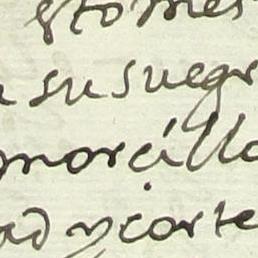 y tomes
a su suegr
morcillo
ad y corte